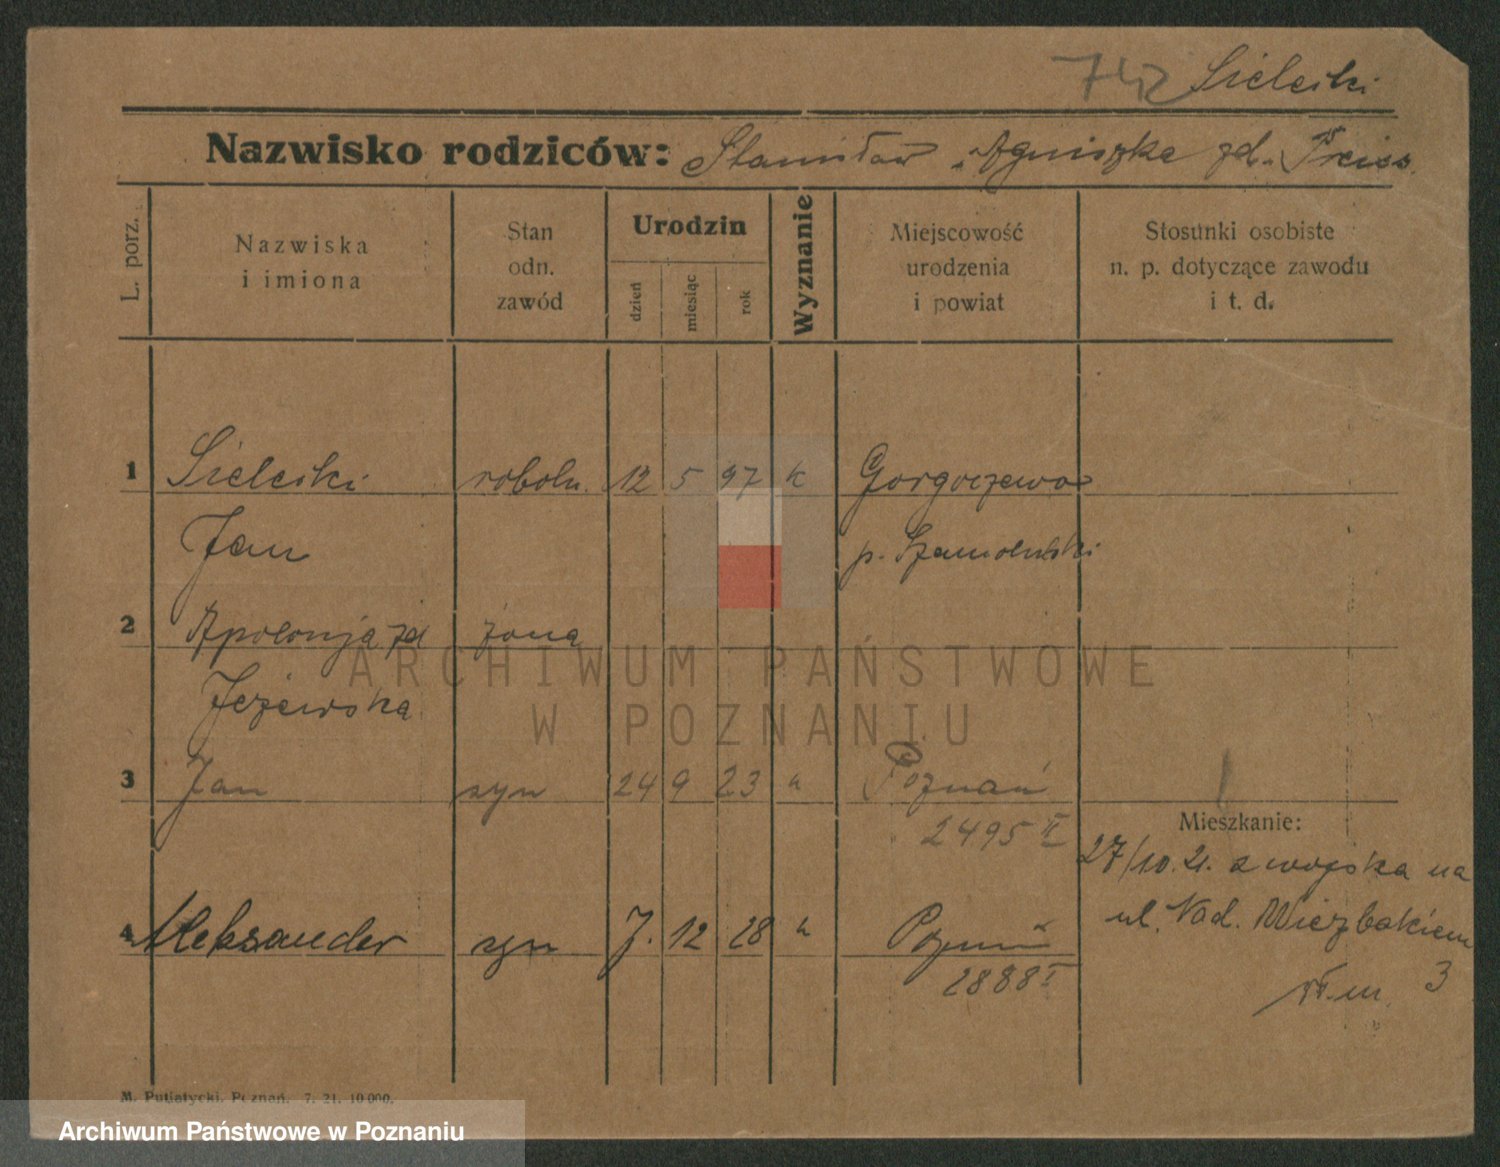 742 Sieleski
Nazwisko rodziców: Stanisław Agniszka zd. Preiss
L. porz.
Nazwiska i imiona
Stan odn. zawód
Urodzin
dzień
miesiąc
rok
Wyznanie
Miejscowość urodzenia i powiat
Stosunki osobiste n. p. dotyczące zawodu i t. d.
1 Sieleski robotn. 12 5 97 k Gorgoszewo
Jan p. Szamotulski
2 Apolonja zd żona
Jeżewska
ARCHIWUM PAŃSTWOWE
W POZNANIU
3 Jan syn 24 9 23 k Poznań
2495 II
Mieszkanie:
27/10. 21. z wojska na
4 Aleksander syn 7. 12 28 k Poznań
ul. Nad. Wierzbakiem
2888 I
3
M. Putiatycki, Poznań. 7. 21. 10 000.
Archiwum Państwowe w Poznaniu